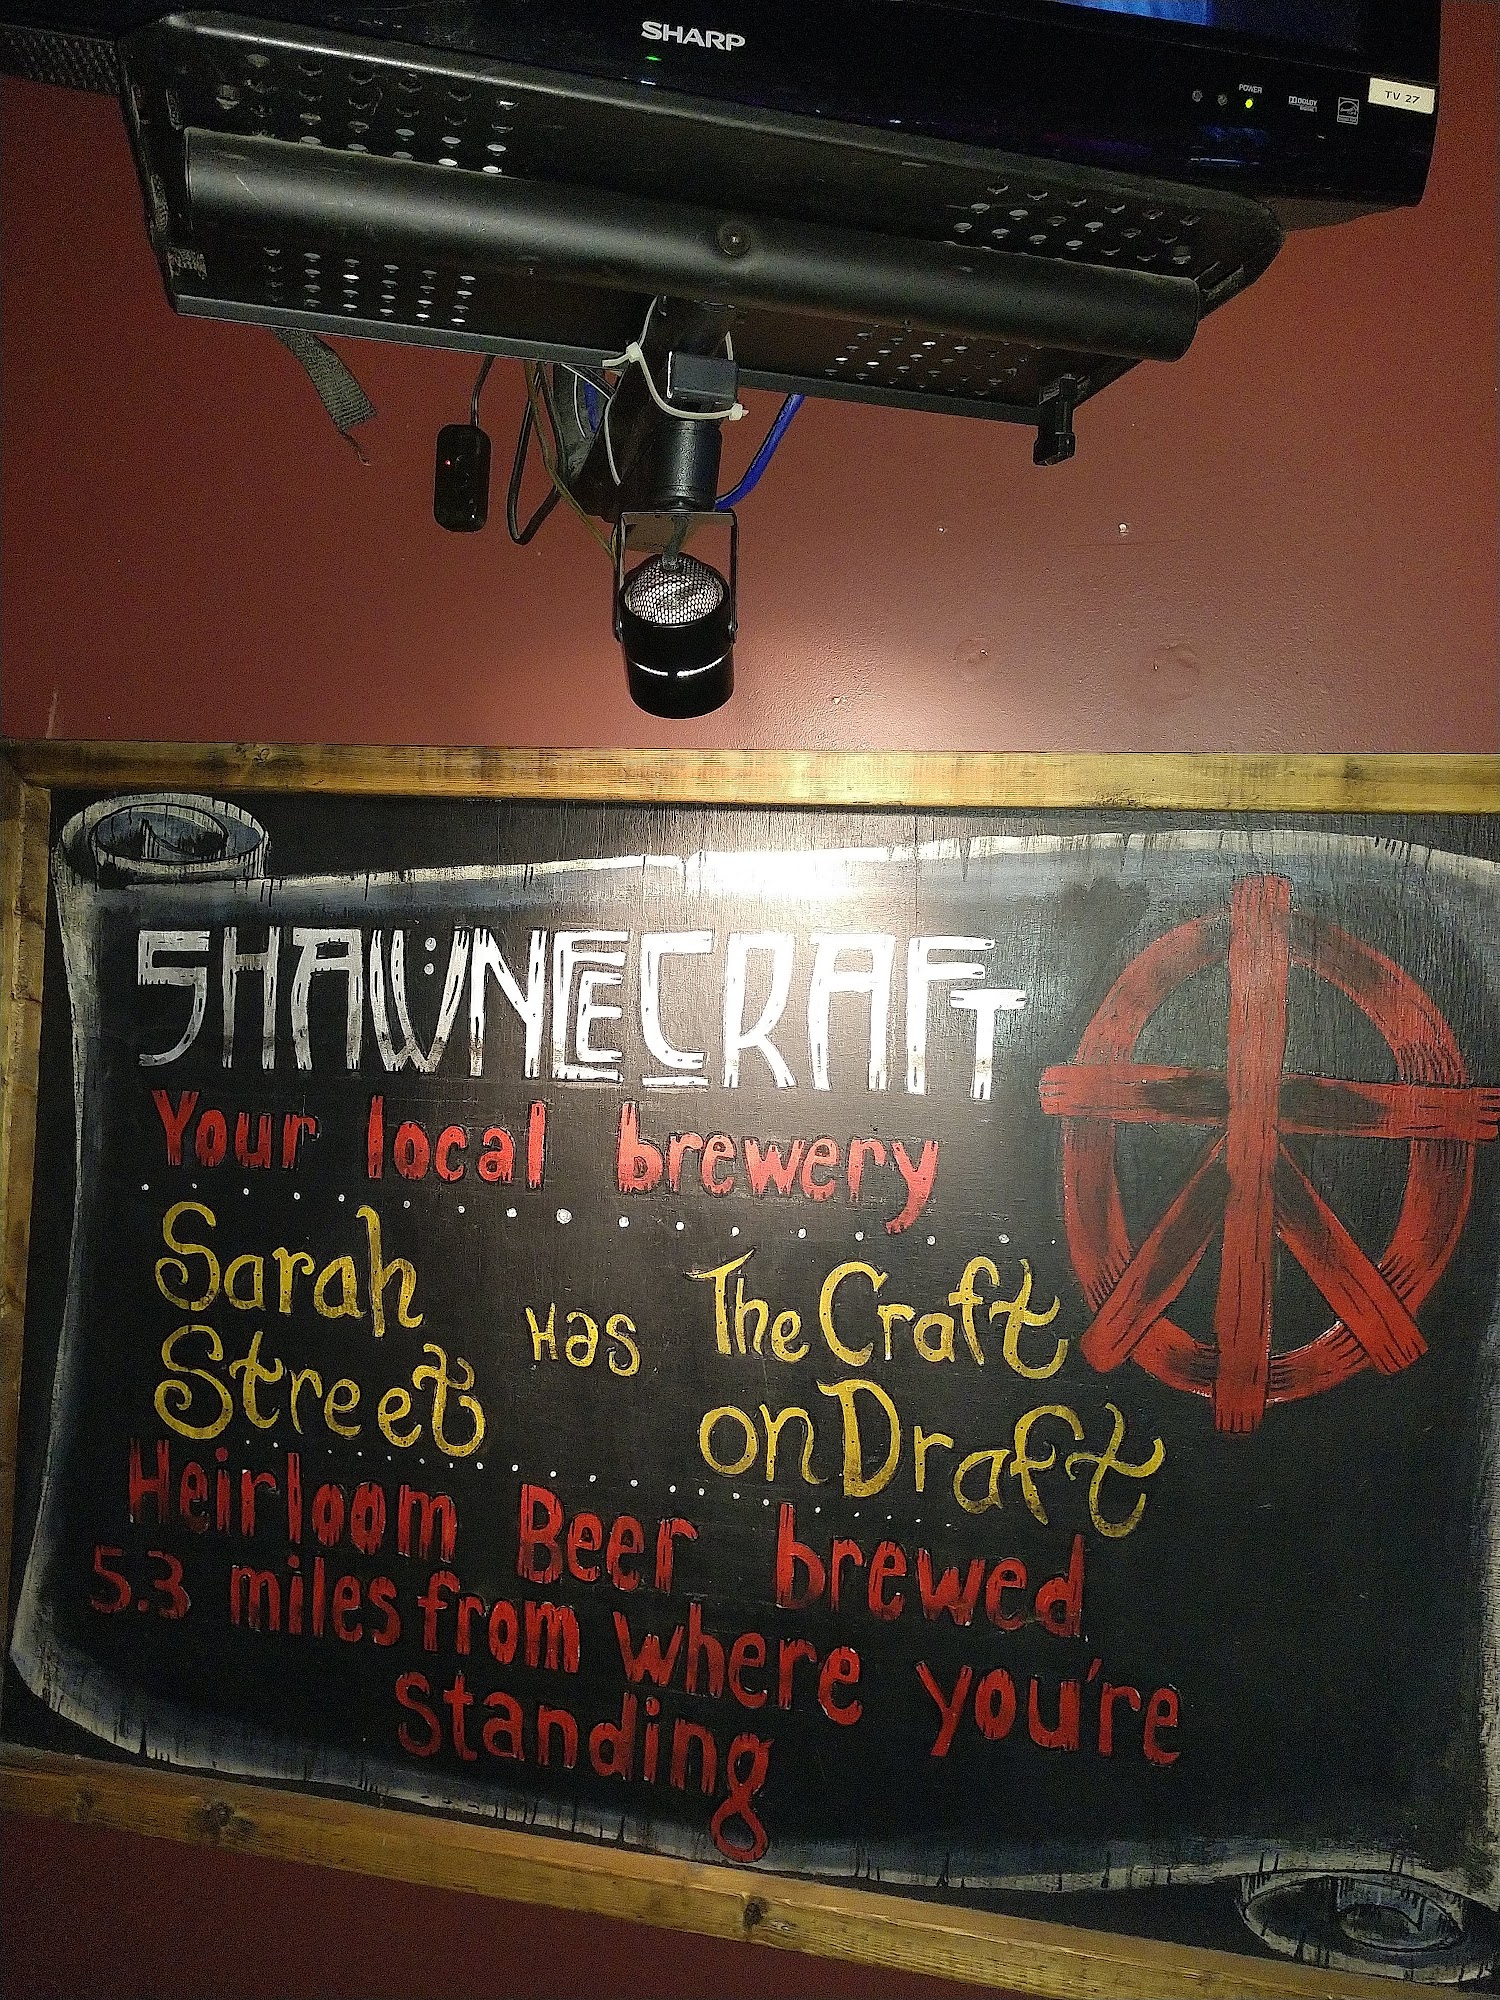 SHARP
POWER
DOLBY
TV 27
SHAWNEECRAFT
Your local brewery
Sarah Street Has The Craft on Draft
Heirloom Beer brewed
5.3 miles from where you're
Standing